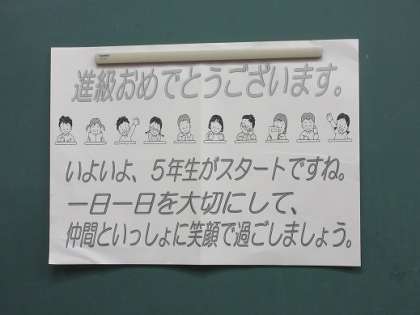 進級おめでとうございます。
いよいよ、5年生がスタートですね。
一日一日を大切にして、
仲間といっしょに笑顔で過ごしましょう。